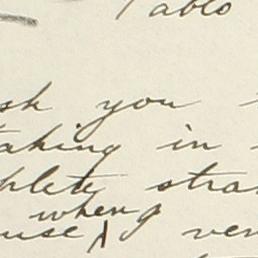 Pablo
sk you
taking in
plete stra
when I
use ven